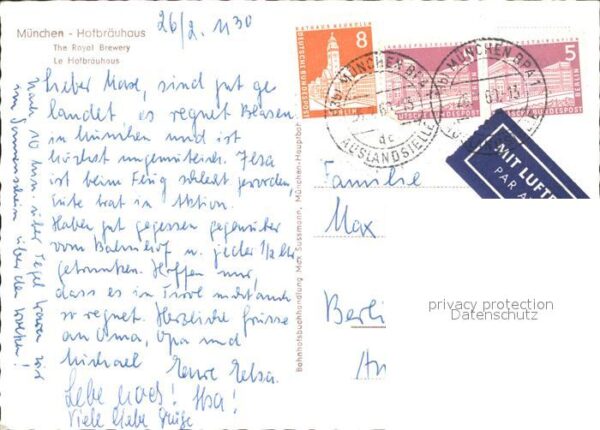 26/2. 1130
München - Hofbräuhaus
The Royal Brewery
Le Hofbräuhaus
Lieber Maxe, sind gut ge
landet, es regnet Bksen.
in München und ist
höchst ungemütlich. Ilsa
ist beim Flug schlecht geworden,
Tüte trat in Aktion.
Haben gut gegessen gegenüber
vom Bahnhof u. jeder 1/2 Ltr
getrunken. Hoffen nur,
dass es in Tirol nicht auch
so regnet. Herzliche Grüsse
an Oma, Opa und
Michael Eure Elsa.
Lebe wohl! Ilsa!
Viele liebe Grüße
Nach 10 Min. über Tegel waren wir
im Sonnenschein über den Wolken!
Bahnhofsbuchhandlung Max Sussmann, München-Hauptbhf
RATHAUS NEUKÖLLN
8
DEUTSCHE BUNDESPOST
BERLIN
5
DEUTSCHE BUNDESPOST
BERLIN
MÜNCHEN BPA
AUSLANDSTELLE
MÜNCHEN BPA
MIT LUFTP
PAR A
Familie
Max
Berli
privacy protection
Datenschutz